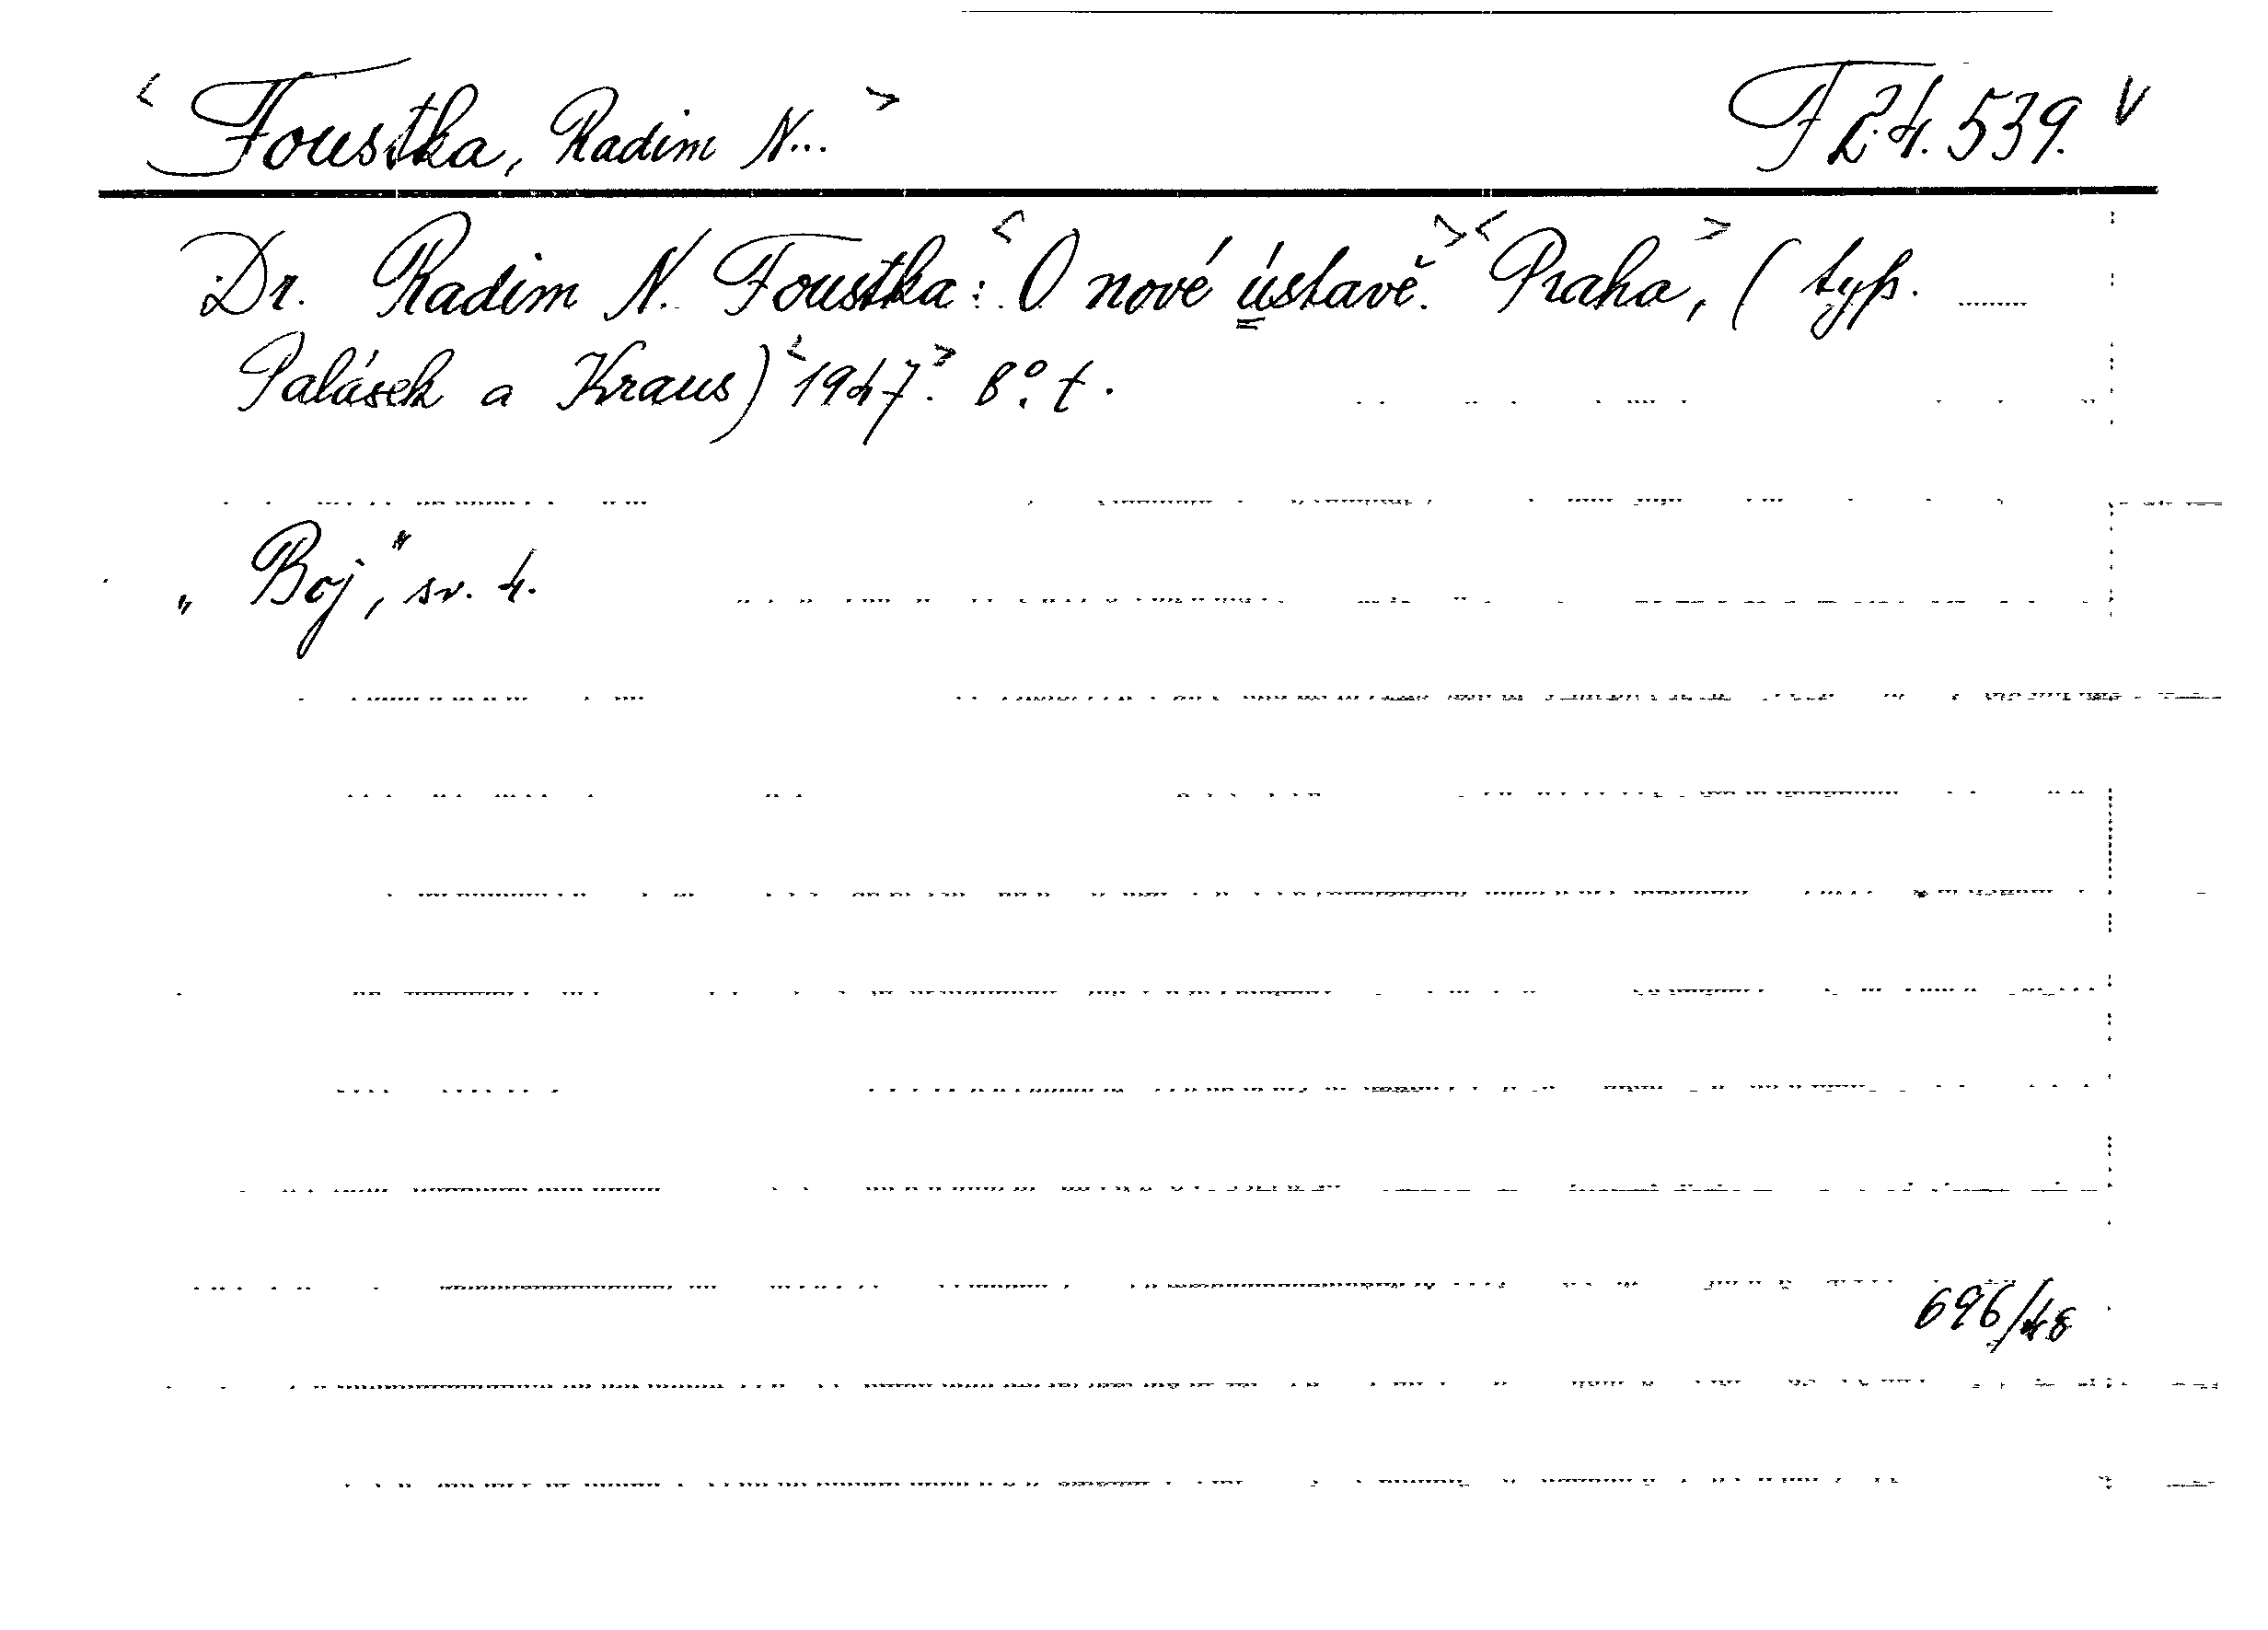 <Foustka, Radim N...> F 24.539. V
Dr. Radim N. Foustka: <O nové ústavě.> <Praha,> (typ.
Palásek a Kraus) <1947.> 8°. t.
„Boj," sv. 4.
696/48